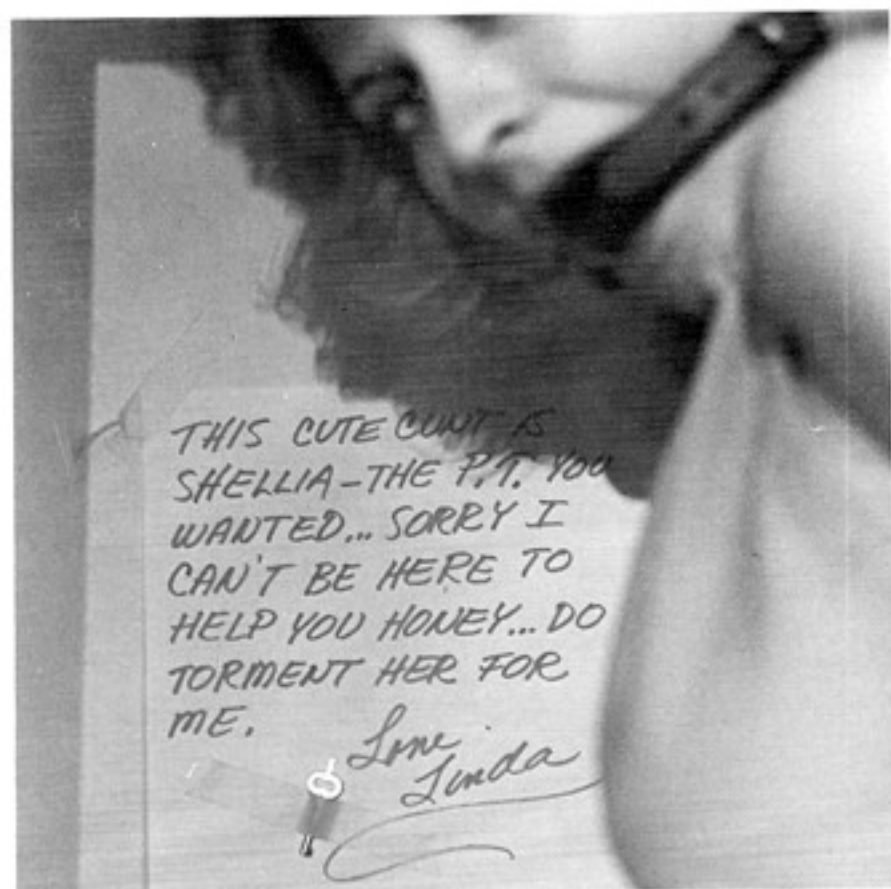 THIS CUTE CUNT IS
SHELLIA-THE P.T. YOU
WANTED... SORRY I
CAN'T BE HERE TO
HELP YOU HONEY... DO
TORMENT HER FOR
ME.
Love
Linda